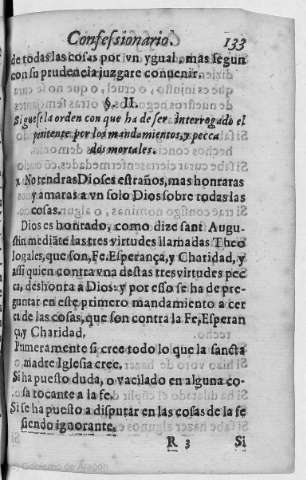 Confeſsionario. 133
de todas las coſas por ivn ygual, mas ſegun
con ſu prudencia juzgare conuenir.
§. II.
Sigueſe la orden con que ha de ſer interrogado el
penitente por los mandamientos, y pecca
dos mortales.
1 No tendras Dioses eſtraños, mas honraras
y amaras a vn ſolo Dios ſobre todas las
coſas.
Dios es honrado, como dize ſant Augu-
ſtin mediāte las tres virtudes llamadas Theo
logales, que ſon, Fe, Eſperança, y Charidad, y
aſsi quien contra vna deſtas tres virtudes pec
ca, deshonta a Dios: y por eſſo ſe ha de pre-
guntar en eſte primero mandamiento a cer
ca de las coſas, que ſon contra la Fe, Eſperan
ça, y Charidad.
Primeramente ſi cree todo lo que la ſancta
madre Igleſia cree.
Si ha pueſto duda, o vacilado en alguna co-
ſa tocante a la fe.
Si ſe ha pueſto a diſputar en las coſas de la fe
ſiendo ignorante.
R 3 Si
Gobierno de Aragón